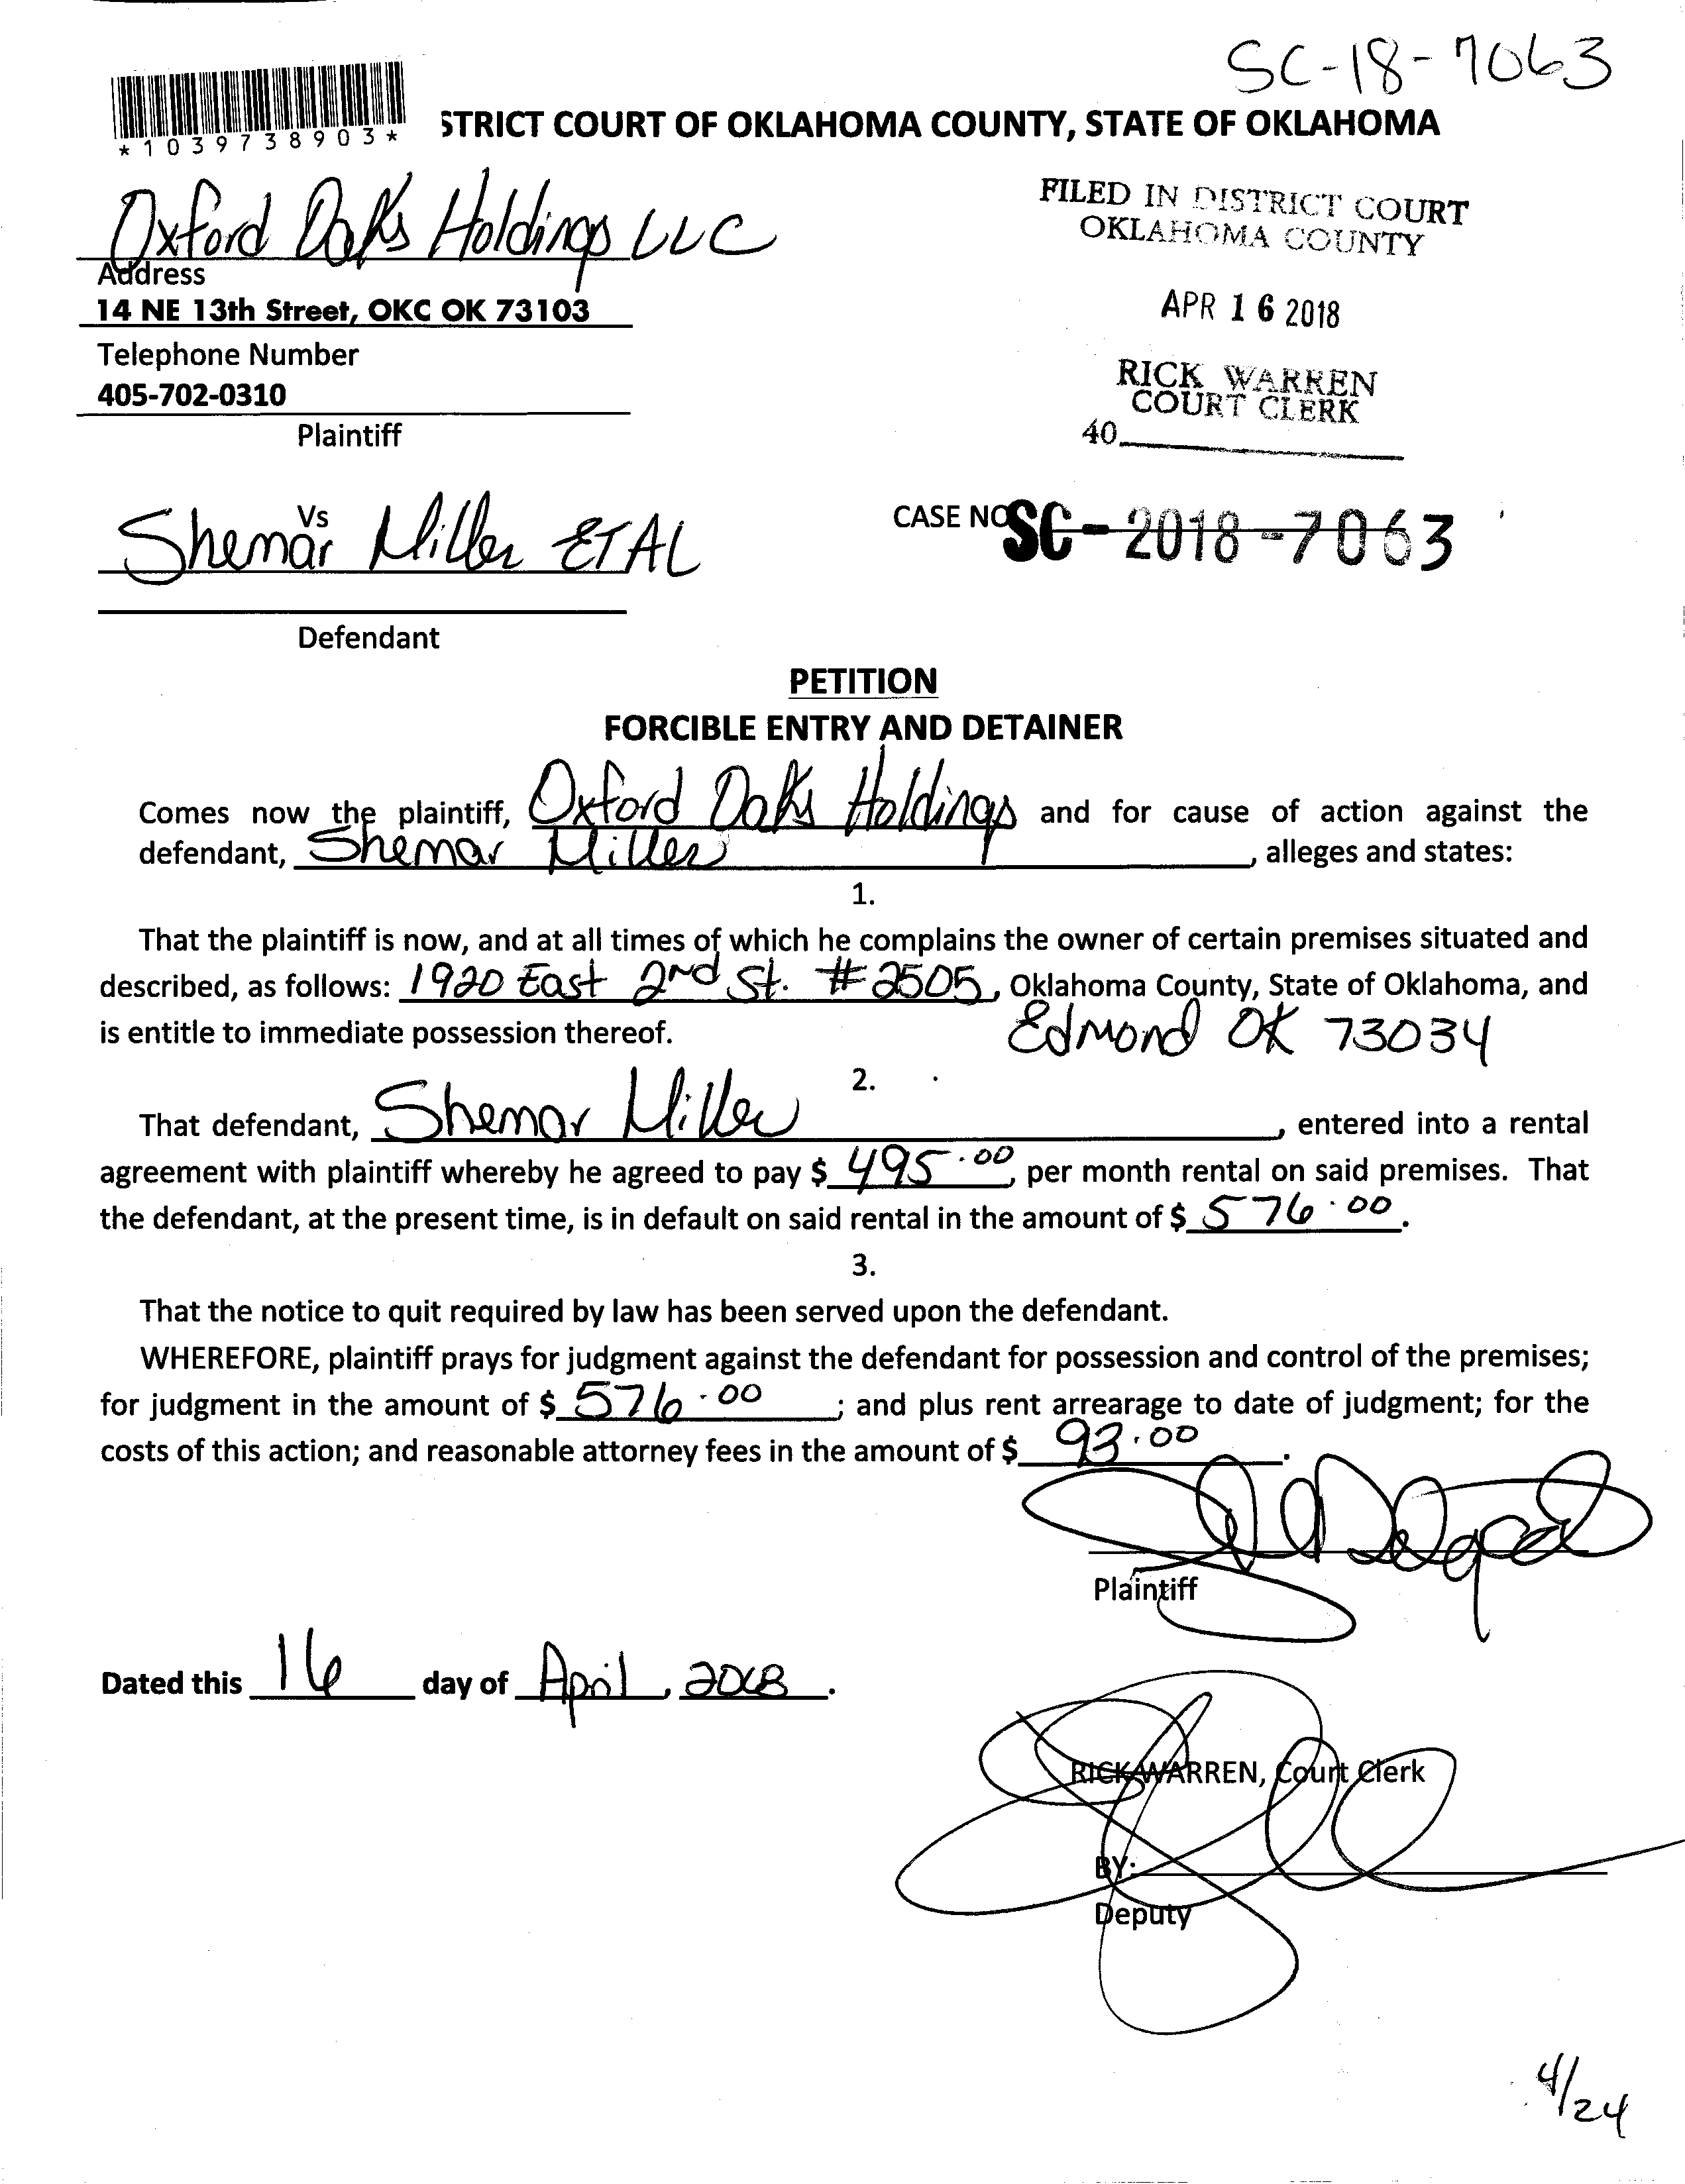 SC-18-7063
*1039738903*
STRICT COURT OF OKLAHOMA COUNTY, STATE OF OKLAHOMA
Oxford Oaks Holdings LLC
Address
14 NE 13th Street, OKC OK 73103
Telephone Number
405-702-0310
Plaintiff
FILED IN DISTRICT COURT
OKLAHOMA COUNTY
APR 16 2018
RICK WARREN
COURT CLERK
40
Vs
Shemar Miller ETAL
Defendant
CASE NO SC-2018-7063
PETITION
FORCIBLE ENTRY AND DETAINER
Comes now the plaintiff, Oxford Oaks Holdings and for cause of action against the
defendant, Shemar Miller, alleges and states:
1.
That the plaintiff is now, and at all times of which he complains the owner of certain premises situated and
described, as follows: 1920 East 2nd St. #2505, Oklahoma County, State of Oklahoma, and
is entitle to immediate possession thereof. Edmond OK 73034
2.
That defendant, Shemar Miller, entered into a rental
agreement with plaintiff whereby he agreed to pay $ 495.00, per month rental on said premises. That
the defendant, at the present time, is in default on said rental in the amount of $ 576.00.
3.
That the notice to quit required by law has been served upon the defendant.
WHEREFORE, plaintiff prays for judgment against the defendant for possession and control of the premises;
for judgment in the amount of $ 576.00; and plus rent arrearage to date of judgment; for the
costs of this action; and reasonable attorney fees in the amount of $ 93.00.
Plaintiff
Dated this 16 day of April, 2018.
RICK WARREN, Court Clerk
BY:
Deputy
4/24